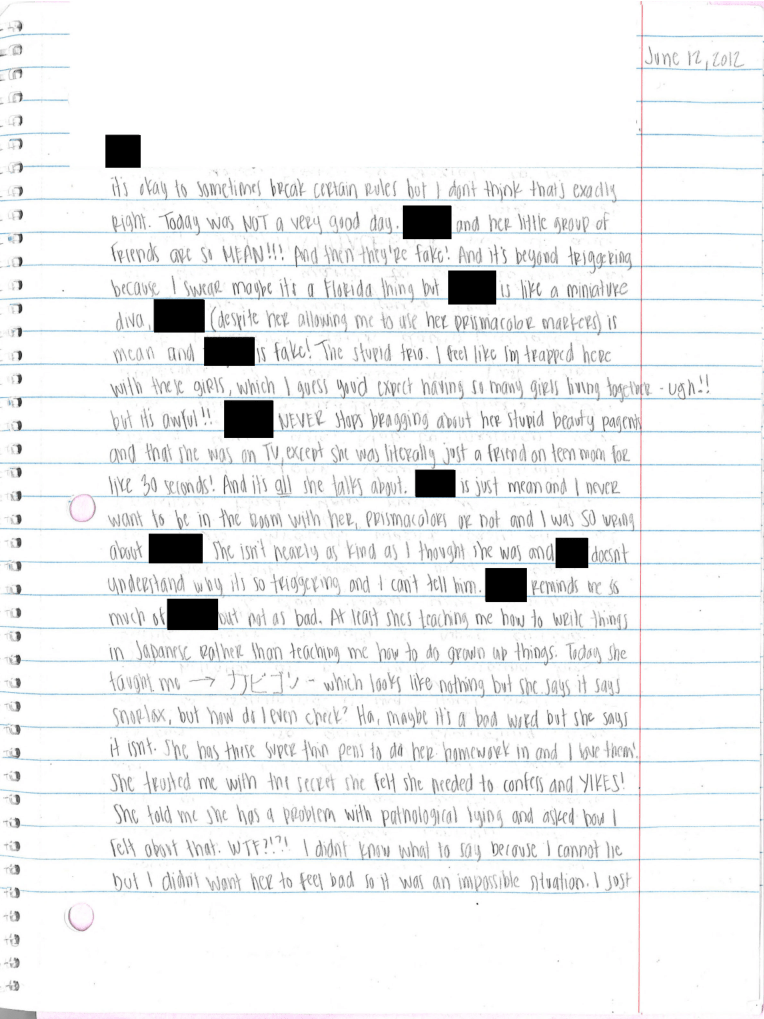 June 12, 2012
it's okay to sometimes break certain rules but I dont think that's exactly
right. Today was NOT a very good day. and her little group of
friends are so MEAN!!! And then they're fake! And it's beyond triggering
because I swear maybe it's a Florida thing but is like a miniature
diva, (despite her allowing me to use her prismacolor markers) is
mean and is fake! The stupid trio. I feel like I'm trapped here
with these girls, which I guess you'd expect having so many girls living together - ugh!!
but it's awful!! NEVER stops bragging about her stupid beauty pagents
and that she was on TV, except she was literally just a friend on teen mom for
like 30 seconds! And it's all she talks about. is just mean and I never
want to be in the room with her, prismacolors or not and I was SO wrong
about She isn't nearly as kind as I thought she was and doesnt
understand why it's so triggering and I can't tell him. Reminds me so
much of but not as bad. At least shes teaching me how to write things
in Japanese rather than teaching me how to do grown up things. Today she
taught me → カビゴン - which looks like nothing but she says it says
snorlax, but how do I even check? Ha, maybe it's a bad word but she says
it isnt. She has these super thin pens to do her homework in and I love them!
She trusted me with the secret she felt she needed to confess and YIKES!
She told me she has a problem with pathological lying and asked how I
felt about that. WTF?!?! I didnt know what to say because I cannot lie
but I didnt want her to feel bad so it was an impossible situation. I just